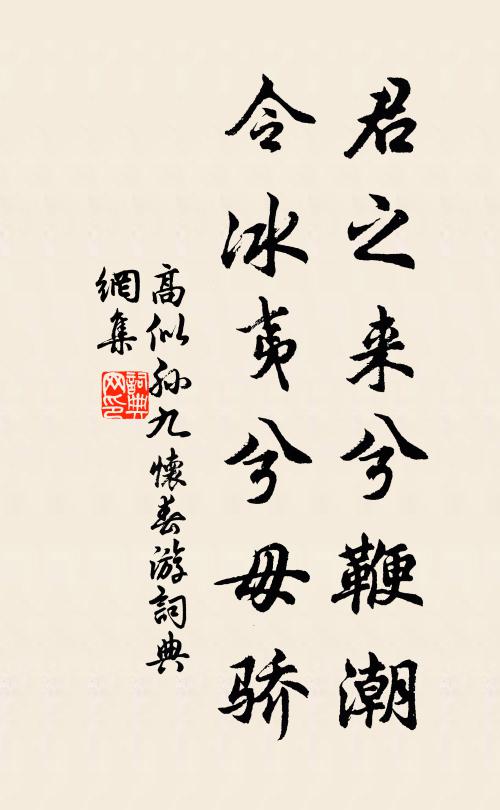 君之来兮鞭潮
令冰夷兮毋骄
高似孙九怀春游詞典
網集
詞典
网印